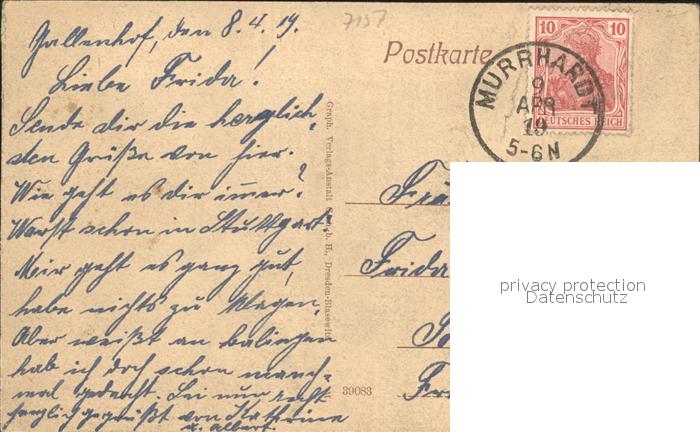 Gallenhof, den 8.4.19.
7157
Postkarte
10 10
DEUTSCHES REICH
MURRHARDT
9
APR
19
5-6N
Liebe Frida!
Sende dir die herzlich-
sten Grüße von hier.
Wie geht es dir immer?
Warst schon in Stuttgart?
Mir geht es ganz gut,
habe nichts zu klagen,
Aber weißt an balingen
hab ich doch schon manch-
mal gedacht. Sei nur recht
herzlich gegrüßt von Kathrine
u. Albert.
Graph. Verlags-Anstalt G. m. b. H., Dresden-Blasewitz
39083
Frida
privacy protection
Datenschutz